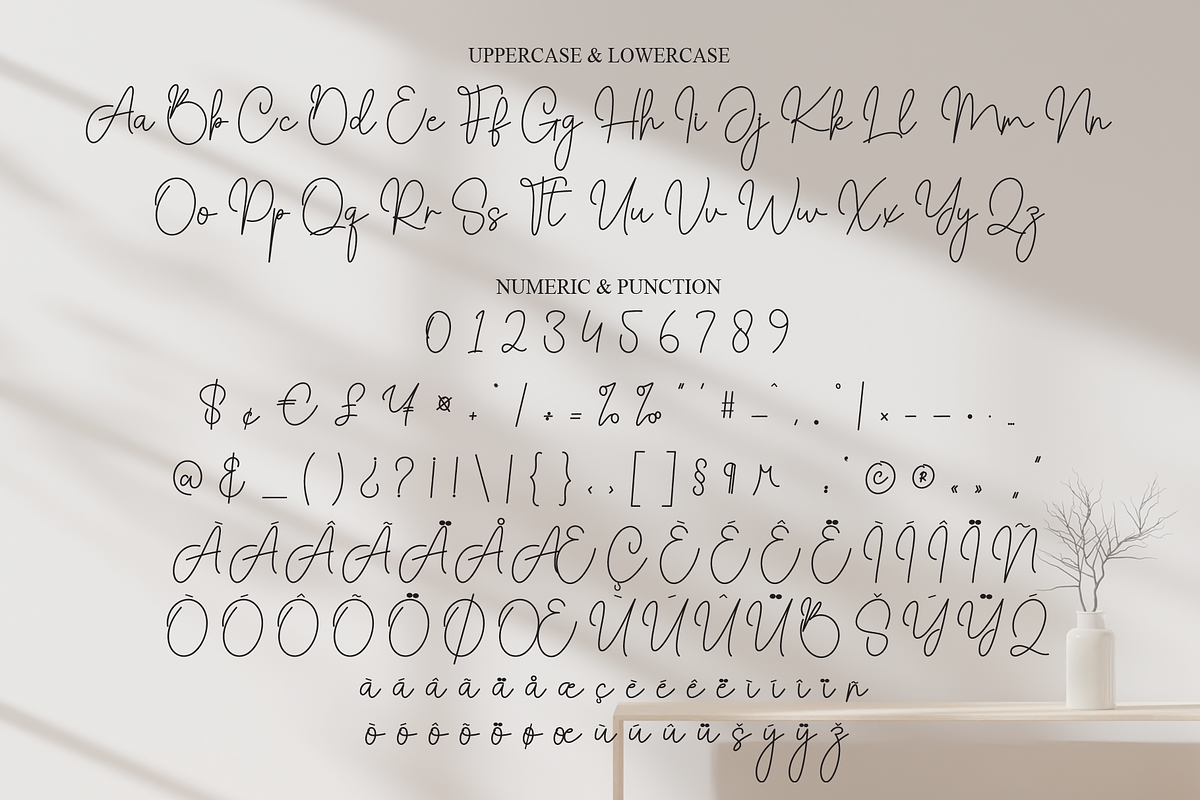 UPPERCASE & LOWERCASE
Aa Bb Cc Dd Ee Ff Gg Hh Ii Jj Kk Ll Mm Nn
Oo Pp Qq Rr Ss Tt Uu Vv Ww Xx Yy Zz
NUMERIC & PUNCTION
0 1 2 3 4 5 6 7 8 9
$ ¢ € £ ¥ ¤ + / ÷ = % ‰ " ' # – ˆ , . ° | × - – • · …
@ _ ( ) ¿ ? ¡ ! \ | { } ‹ › [ ] § ¶ µ : © ® « » „ "
À Á Â Ã Ä Å Æ Ç È É Ê Ë Ì Í Î Ï Ñ
Ò Ó Ô Õ Ö Ø Œ Ù Ú Û Ü Š Ý Ÿ
à á â ã ä å æ ç è é ê ë ì í î ï ñ
ò ó ô õ ö ø œ ù ú û ü š ý ÿ ž